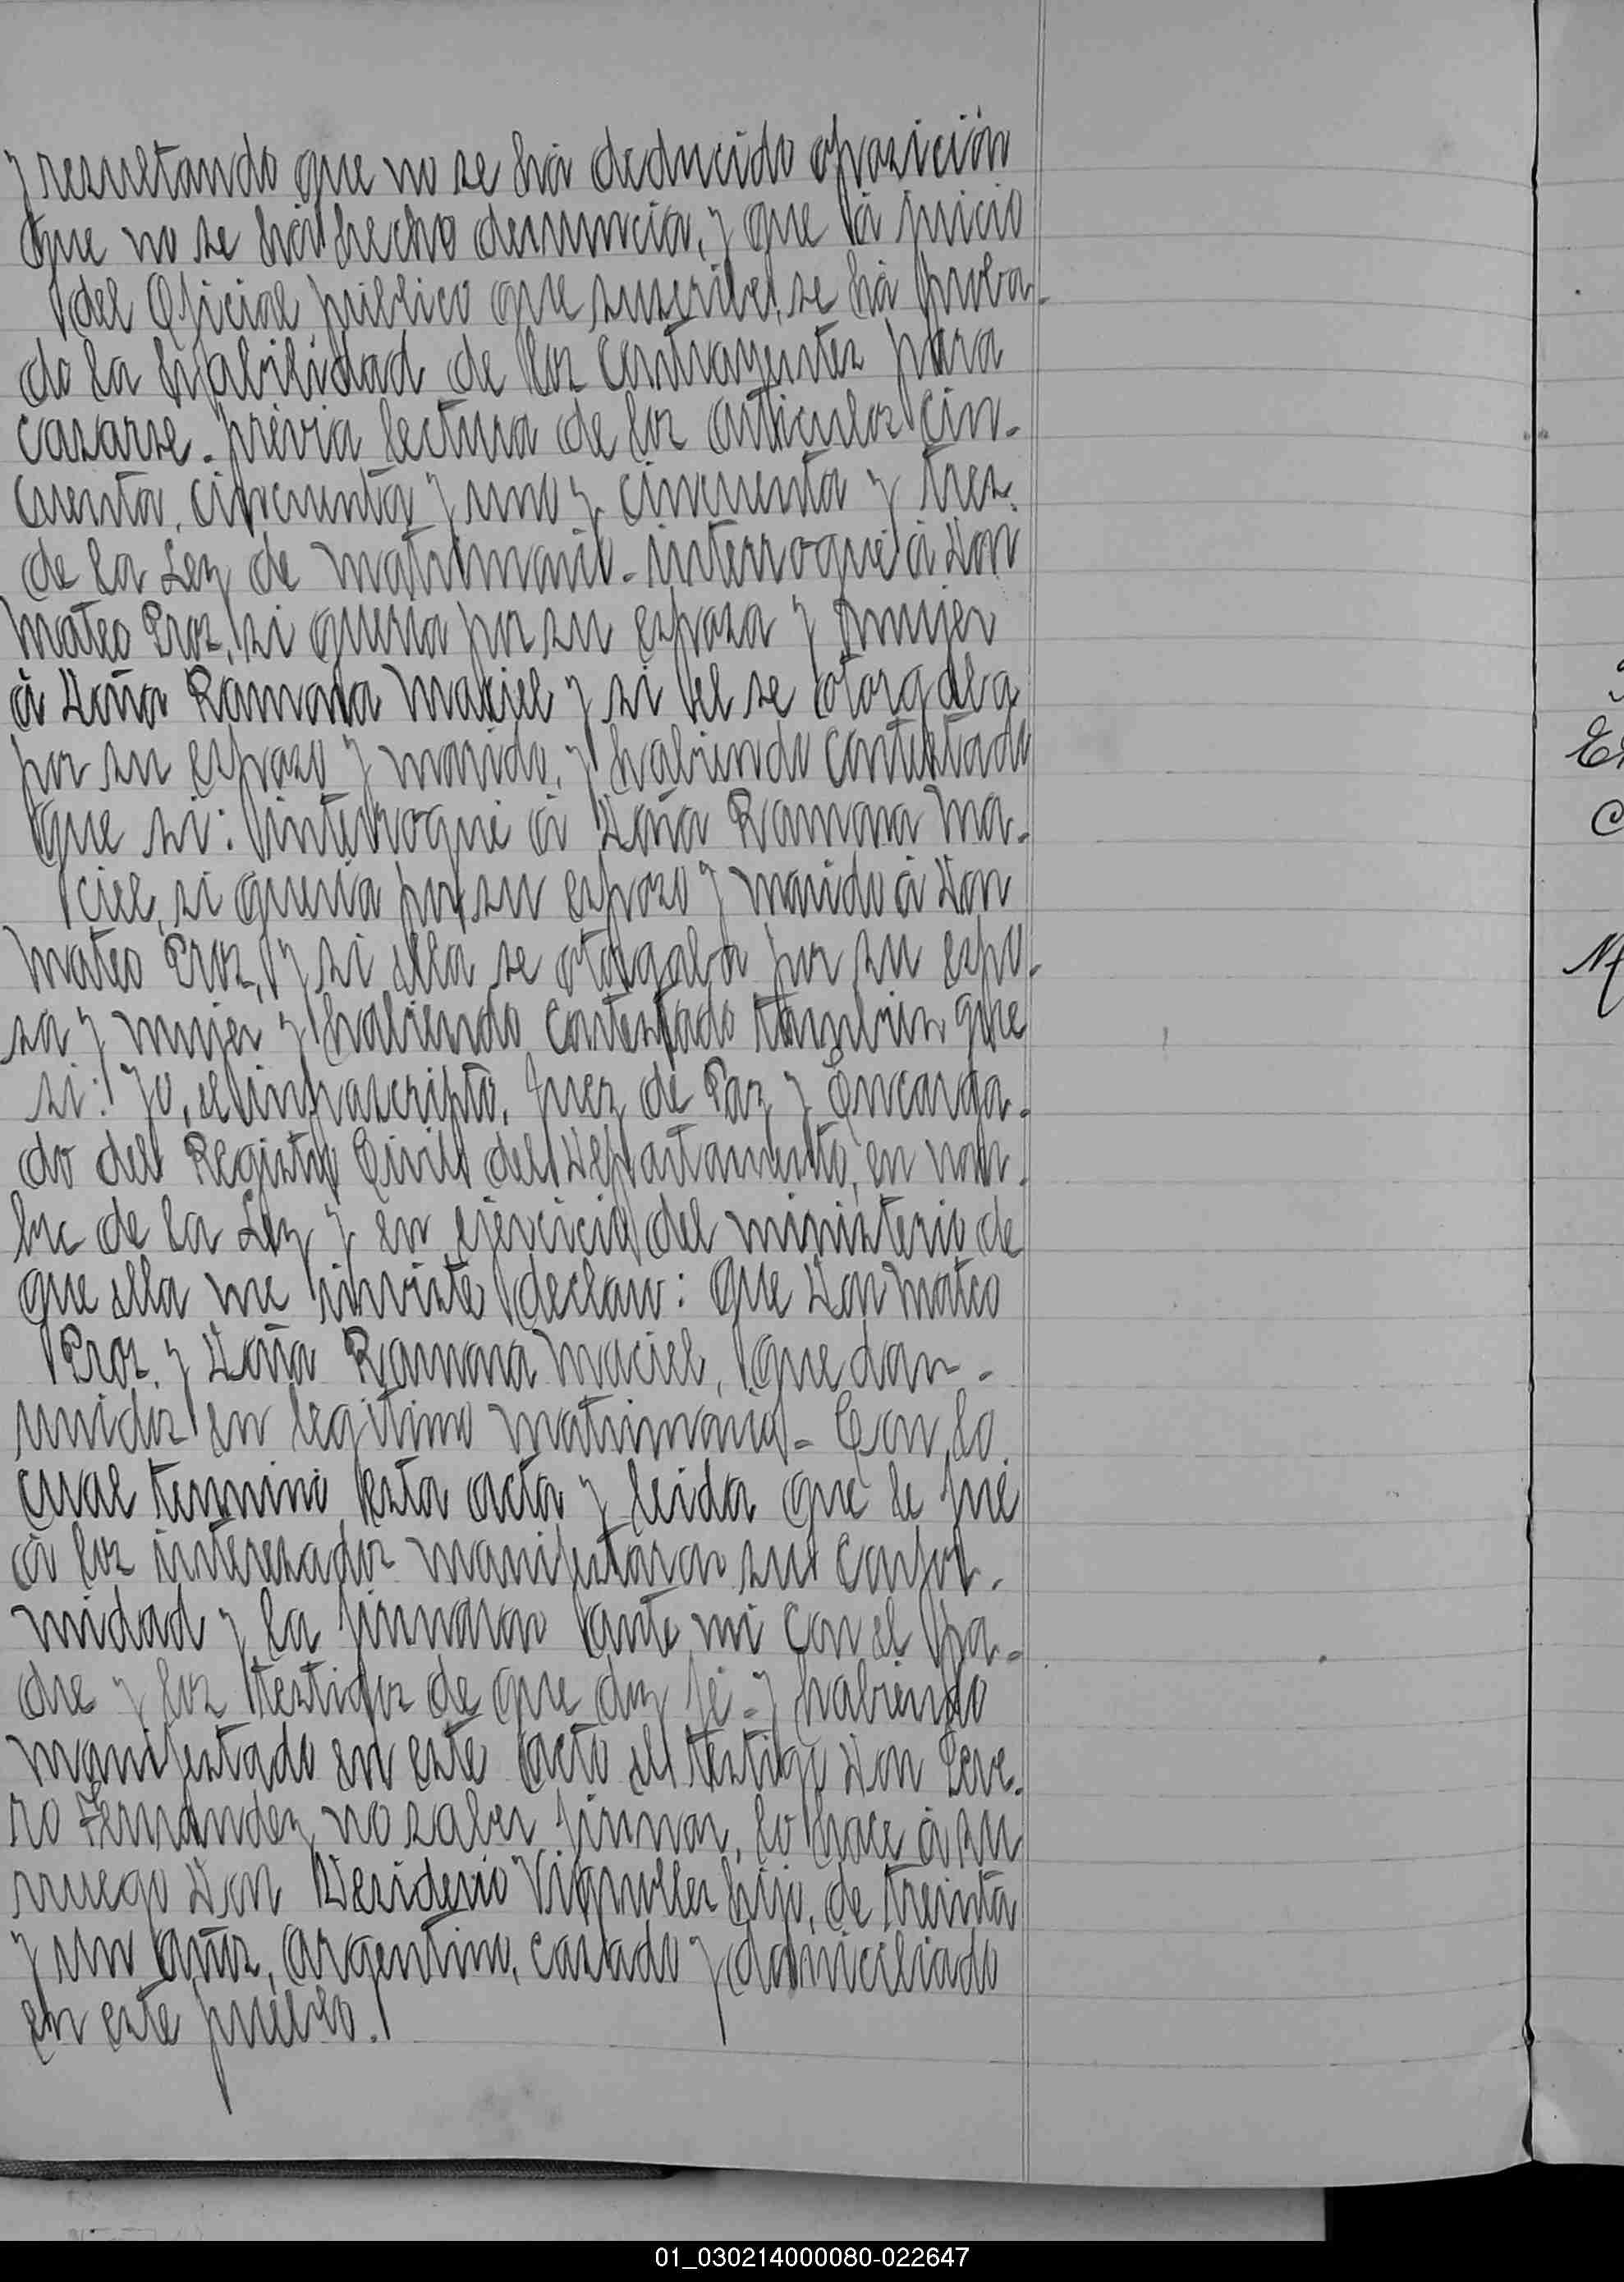 y resultando que no se há deducido oposición
que no se há hecho denuncia, y que á juicio
del Oficial público que suscribe, se há proba-
do la habilidad de los contrayentes para
casarse. prévia lectura de los articulos cin-
cuenta, cincuenta y uno y cincuenta y tres
de la Ley de matrimonio - interrogué á Don
Mateo Proz, si queria por su esposa y mujer
á Doña Ramona Maciel y si el se otorgaba
por su esposo y marido, y habiendo contestado
que si: interrogué á Doña Ramona Ma-
ciel, si queria por su esposo y marido á Don
Mateo Proz, y si ella se otorgaba por su espo-
sa y mujer y habiendo contestado tambien que
si: Yo, el infrascripto, Juez de Paz y Encarga-
do del Registro Civil del Departamento, en nom-
bre de la Ley y en ejercicio del ministerio de
que ella me inviste declaro: que Don Mateo
Proz, y Doña Ramona Maciel, quedan -
unidos en legitimo matrimonio - Con lo
cual terminó esta acta y leida que le fué
á los interesados manifestaron su confor-
midad y la firmaron ante mi con el pa-
dre y los testigos de que doy fé - y habiendo
manifestado en este acto el testigo Don Seve-
ro Fernandez no saber firmar, lo hace á su
ruego Don Desiderio Viqueller hijo, de treinta
y un años, argentino, casado y domiciliado
en este pueblo.
01_030214000080-022647